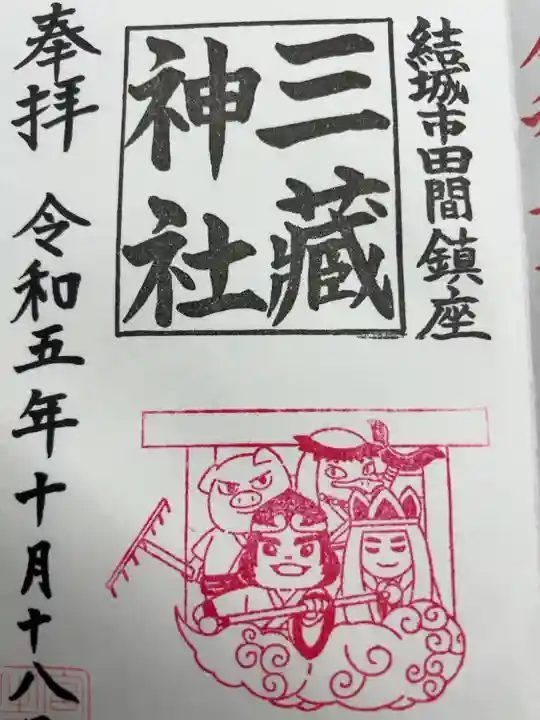 結城市田間鎮座
三藏
神社
奉拝 令和五年十月十八